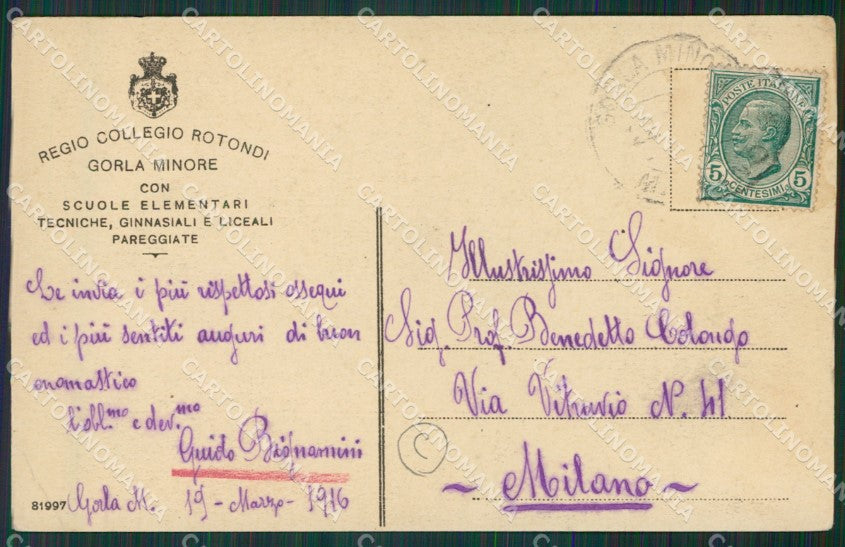 REGIO COLLEGIO ROTONDI
GORLA MINORE
CON
SCUOLE ELEMENTARI
TECNICHE, GINNASIALI E LICEALI
PAREGGIATE
Le invia i più rispettosi ossequi
ed i più sentiti auguri di buon
onomastico
l'obb.mo e dev.mo
Guido Bignamini
81997 Gorla M. 19 - Marzo - 1916
GORLA MINO
POSTE ITALIANE
5 CENTESIMI 5
Illustrissimo Signore
Sig. Prof. Benedetto Colongo
Via Vitruvio N. 41
~ Milano ~
C
CARTOLINOMANIA